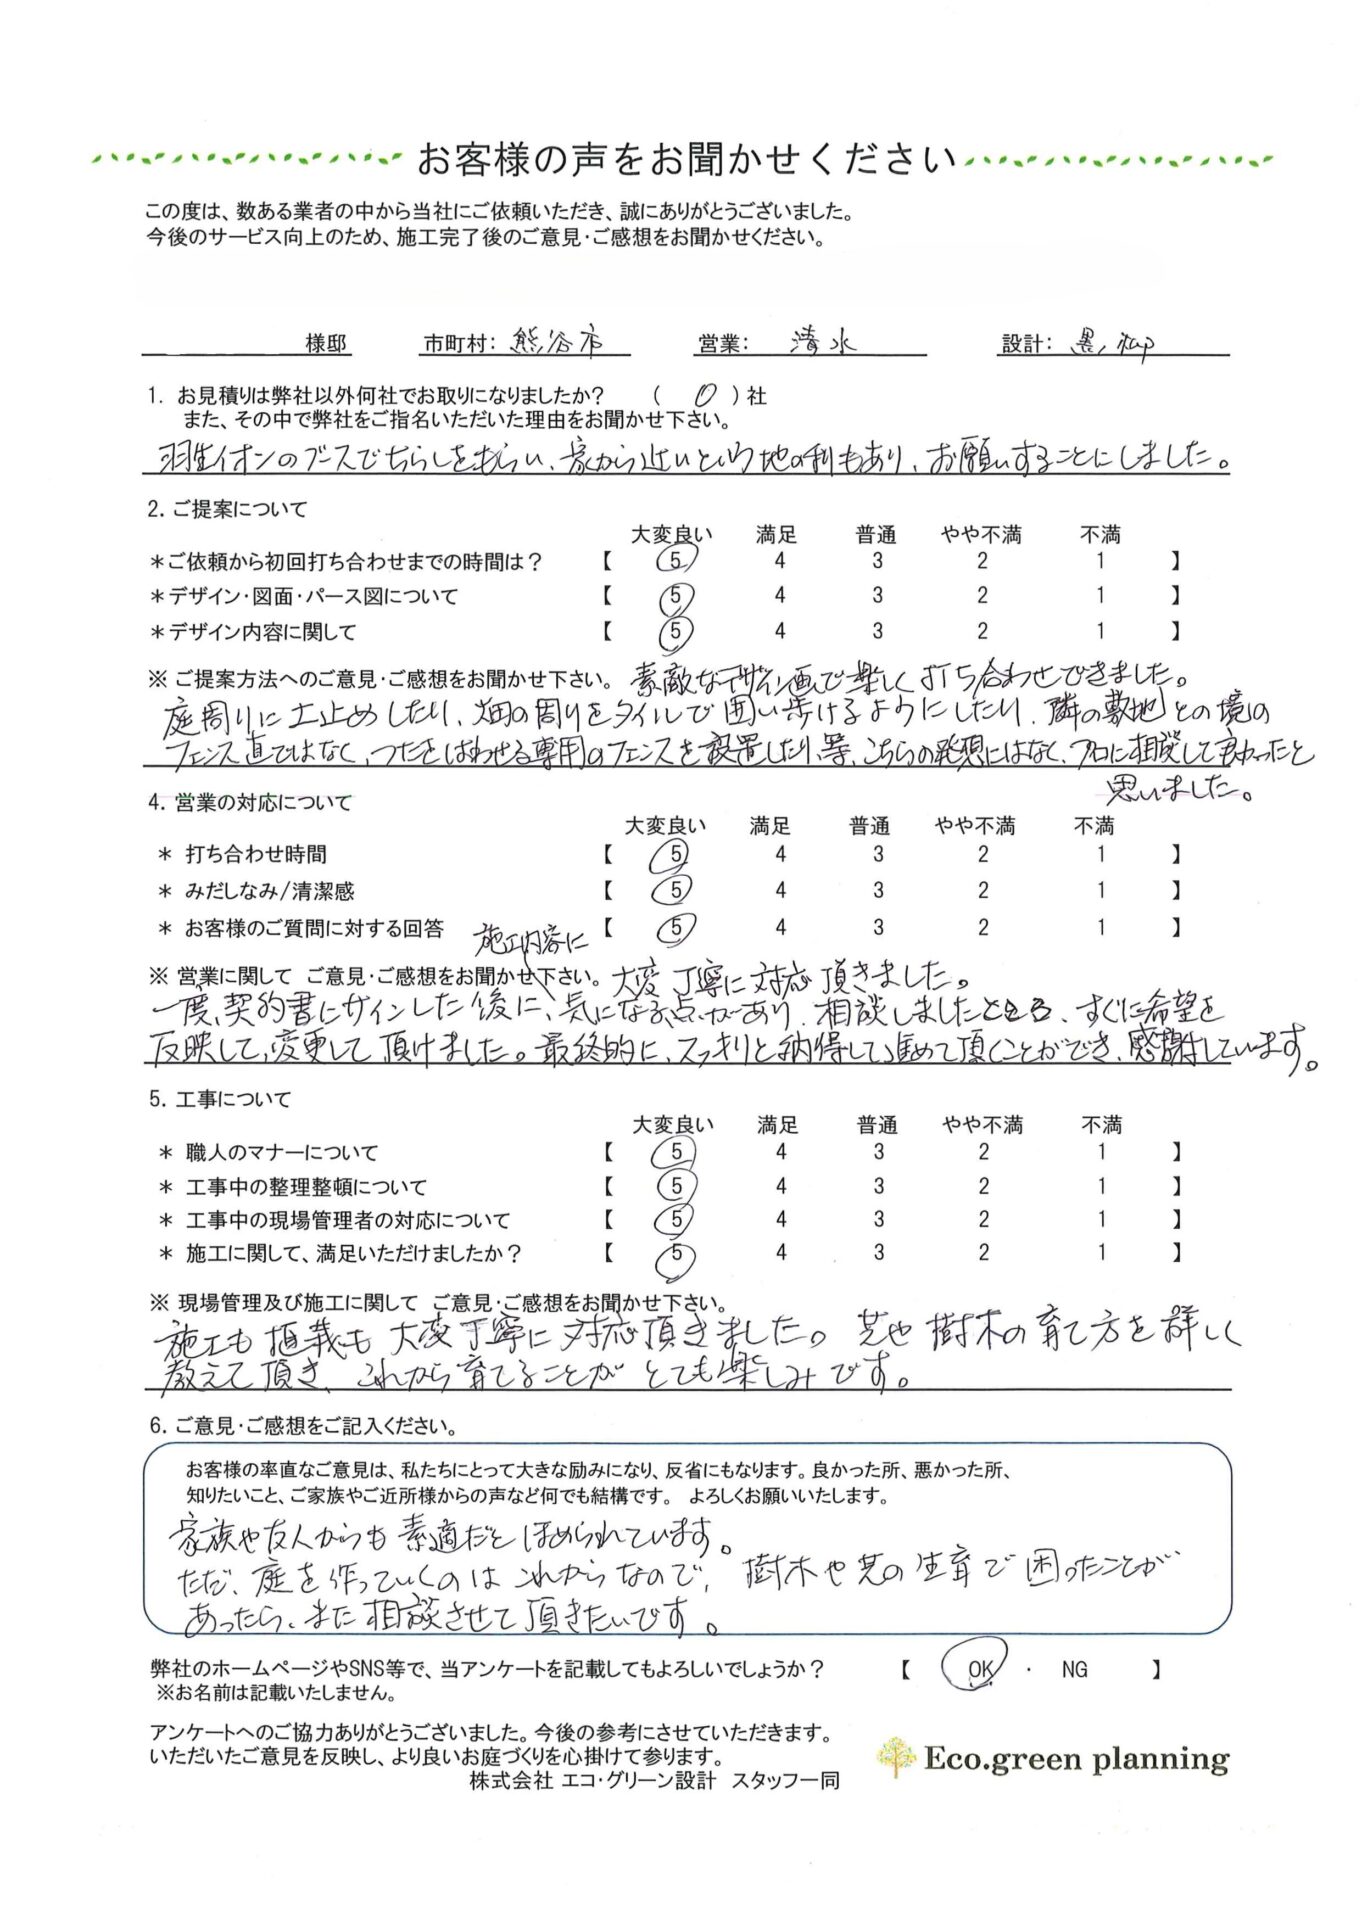 お客様の声をお聞かせください
この度は、数ある業者の中から当社にご依頼いただき、誠にありがとうございました。
今後のサービス向上のため、施工完了後のご意見・ご感想をお聞かせください。
様邸 市町村: 熊谷市 営業: 清水 設計: 黒
1. お見積りは弊社以外何社でお取りになりましたか? ( 0 )社
また、その中で弊社をご指名いただいた理由をお聞かせ下さい。
羽生イオンのブースでちらしをもらい、家から近いという地の利もあり、お願いすることにしました。
2. ご提案について
大変良い 満足 普通 やや不満 不満
＊ご依頼から初回打ち合わせまでの時間は? 【 5 4 3 2 1 】
＊デザイン・図面・パース図について 【 5 4 3 2 1 】
＊デザイン内容に関して 【 5 4 3 2 1 】
※ ご提案方法へのご意見・ご感想をお聞かせ下さい。 素敵なデザイン画で楽しく打ち合わせできました。
庭周りに土止めしたり、畑の周りをタイルで囲い歩けるようにしたり、隣の敷地との境の
フェンス直ではなく、つたをはわせる専用のフェンスを設置したり、等、こちらの発想にはなく、プロに相談して良かったと
思いました。
4. 営業の対応について
大変良い 満足 普通 やや不満 不満
＊ 打ち合わせ時間 【 5 4 3 2 1 】
＊ みだしなみ/清潔感 【 5 4 3 2 1 】
＊ お客様のご質問に対する回答 【 5 4 3 2 1 】
施工内容に
※ 営業に関して ご意見・ご感想をお聞かせ下さい。 大変丁寧に対応頂きました。
一度、契約書にサインした後に、気になる点があり、相談しましたところ、すぐに希望を
反映して、変更して頂けました。最終的に、スッキリと納得して進めて頂くことができ、感謝しています。
5. 工事について
大変良い 満足 普通 やや不満 不満
＊ 職人のマナーについて 【 5 4 3 2 1 】
＊ 工事中の整理整頓について 【 5 4 3 2 1 】
＊ 工事中の現場管理者の対応について 【 5 4 3 2 1 】
＊ 施工に関して、満足いただけましたか? 【 5 4 3 2 1 】
※ 現場管理及び施工に関して ご意見・ご感想をお聞かせ下さい。
施工も植栽も大変丁寧に対応頂きました。芝や樹木の育て方を詳しく
教えて頂き、これから育てることがとても楽しみです。
6. ご意見・ご感想をご記入ください。
お客様の率直なご意見は、私たちにとって大きな励みになり、反省にもなります。良かった所、悪かった所、
知りたいこと、ご家族やご近所様からの声など何でも結構です。 よろしくお願いいたします。
家族や友人からも素適だとほめられています。
ただ、庭を作っていくのはこれからなので、樹木や芝の生育で困ったことが
あったら、また相談させて頂きたいです。
弊社のホームページやSNS等で、当アンケートを記載してもよろしいでしょうか? 【 OK ・ NG 】
※お名前は記載いたしません。
アンケートへのご協力ありがとうございました。今後の参考にさせていただきます。
いただいたご意見を反映し、より良いお庭づくりを心掛けて参ります。
株式会社 エコ・グリーン設計 スタッフ一同
Eco.green planning